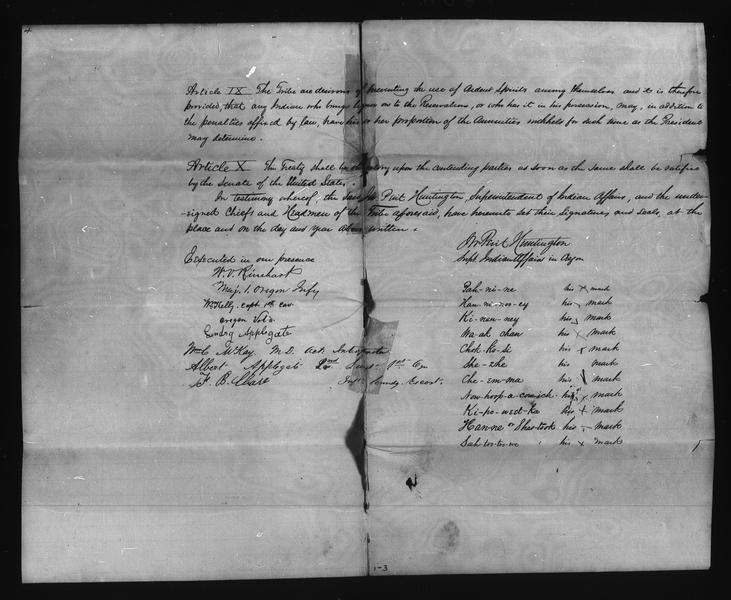 4
Article IX The Tribe are desirous of preventing the use of Ardent Spirits among themselves and it is therefore
provided, that any Indian who brings liquor on to the Reservations, or who has it in his possession, may, in addition to
the penalties affixed by law, have his or her proportion of the Annuities withheld for such time as the President
may determine.
Article X This Treaty shall be obligatory upon the contending parties as soon as the same shall be ratified
by the Senate of the United States.
In testimony whereof, the said J W Perit Huntington, Superintendent of Indian Affairs, and the under-
-signed Chiefs and Headmen of the Tribe aforesaid, have hereunto set their signatures and seals, at the
place and on the day and year above written.
J W Perit Huntington
Supt Indian Affairs in Oregon
Executed in our presence
W. V. Rinehart
Maj. 1. Oregon Infy
Wm Kelly, capt 1st cav.
oregon Vols.
Lindsy Applegate
Wm C. McKay. M.D. Act. Interpreter
Albert Applegate 2nd Lieut. 1st
F. B.
Pah-ni-ne his x mark
his x mark
Ki-nau-ney his x mark
Wa-ak chau his x mark
Chok-ko-si his x mark
She-zhe his mark
Che-em-ma his x mark
Now-hoop-a-cowick. his x mark
Ki-po-weet-ka his x mark
Han-ne or Shas-took his x mark
Sah-too-too-we his x mark
1-3